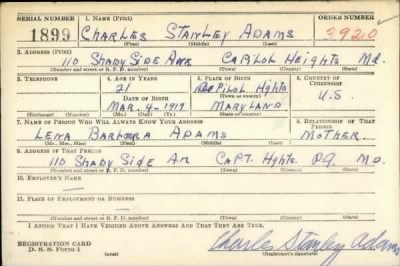 SERIAL NUMBER 1. NAME (Print) ORDER NUMBER
1899 CHARLES STANLEY ADAMS 3920
(First) (Middle) (Last)
2. ADDRESS (Print)
110 SHADY SIDE AVE CAPITOL HEIGHTS Md.
(Number and street or R. F. D. number) (Town) (County) (State)
3. TELEPHONE 4. AGE IN YEARS 5. PLACE OF BIRTH 6. COUNTRY OF CITIZENSHIP
21 CAPITOL Hghts
DATE OF BIRTH (Town or county)
MAR. 4 - 1919 MARYLAND U.S.
(Exchange) (Number) (Mo.) (Day) (Yr.) (State or country)
7. NAME OF PERSON WHO WILL ALWAYS KNOW YOUR ADDRESS 8. RELATIONSHIP OF THAT PERSON
LENA BARBARA ADAMS MOTHER
(Mr., Mrs., Miss) (First) (Middle) (Last)
9. ADDRESS OF THAT PERSON
110 SHADY SIDE AVE CAPT. Hghts. P.G. MD.
(Number and street or R. F. D. number) (Town) (County) (State)
10. EMPLOYER'S NAME
—
11. PLACE OF EMPLOYMENT OR BUSINESS
—
(Number and street or R. F. D. number) (Town) (County) (State)
I AFFIRM THAT I HAVE VERIFIED ABOVE ANSWERS AND THAT THEY ARE TRUE.
REGISTRATION CARD
D. S. S. FORM 1 Charles Stanley Adams
(Registrant's signature)